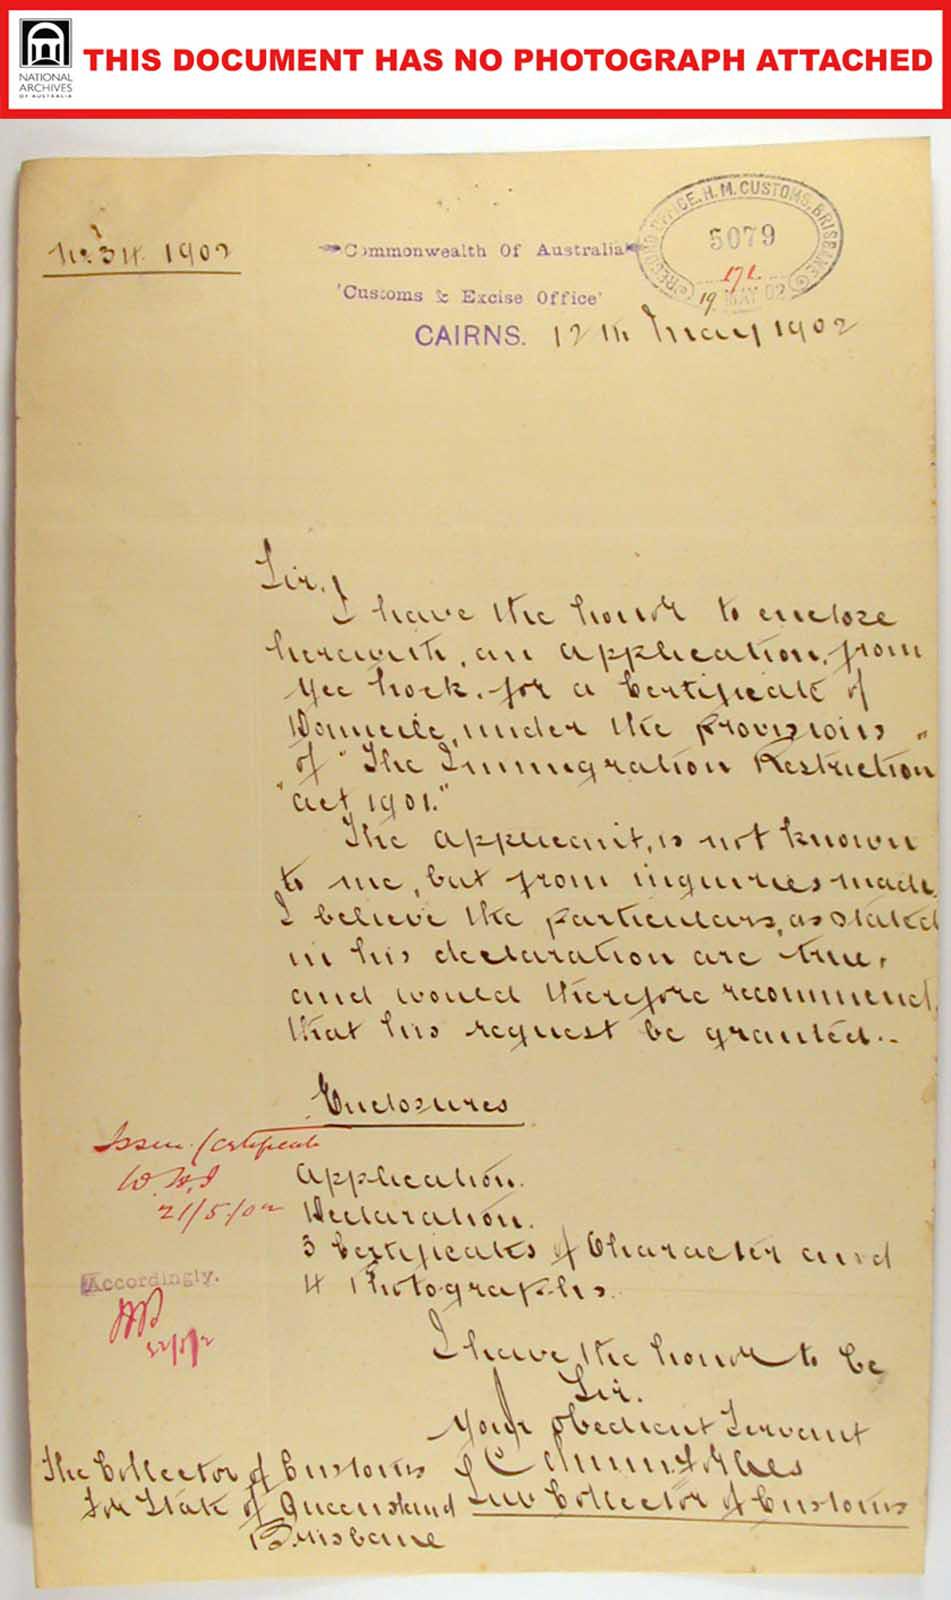 NATIONAL
ARCHIVES
OF AUSTRALIA
THIS DOCUMENT HAS NO PHOTOGRAPH ATTACHED
No. 34. 1902
RECORD OFFICE. H.M. CUSTOMS. BRISBANE
5079
171
19 MAY 02
Commonwealth Of Australia
'Customs & Excise Office'
CAIRNS. 12th May 1902
Sir,
I have the honor to enclose
herewith, an application, from
Yee Hock, for a Certificate of
Domicile, under the provisions
of "The Immigration Restriction
"Act 1901."
The applicant, is not known
to me, but from inquiries made,
I believe the particulars, as stated
in his declaration are true,
and would therefore recommend,
that his request be granted..
Enclosures
Issue Certificate
W.H.I
21/5/02
Application.
Declaration.
3 Certificates of Character and
4 Photographs.
Accordingly.
I have the honor to be
Sir.
Your obedient Servant
Sub Collector of Customs
The Collector of Customs
For State of Queensland
Brisbane